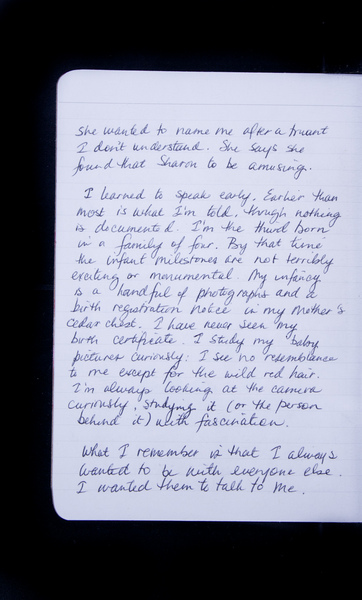 she wanted to name me after a truant
I don't understand. She says she
found that Sharon to be amusing.
I learned to speak early. Earlier than
most is what I'm told, though nothing
is documented. I'm the third born
in a family of four. By that time
the infant milestones are not terribly
exciting or monumental. My infancy
is a handful of photographs and a
birth registration notice in my mother's
cedar chest. I have never seen my
birth certificate. I study my baby
pictures curiously: I see no resemblance
to me except for the wild red hair.
I'm always looking at the camera
curiously, studying it (or the person
behind it) with fascination.
What I remember is that I always
wanted to be with everyone else.
I wanted them to talk to me.